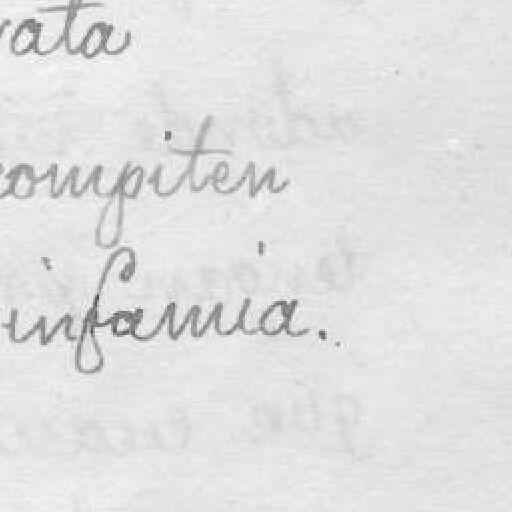 vata
compiten
infamia.